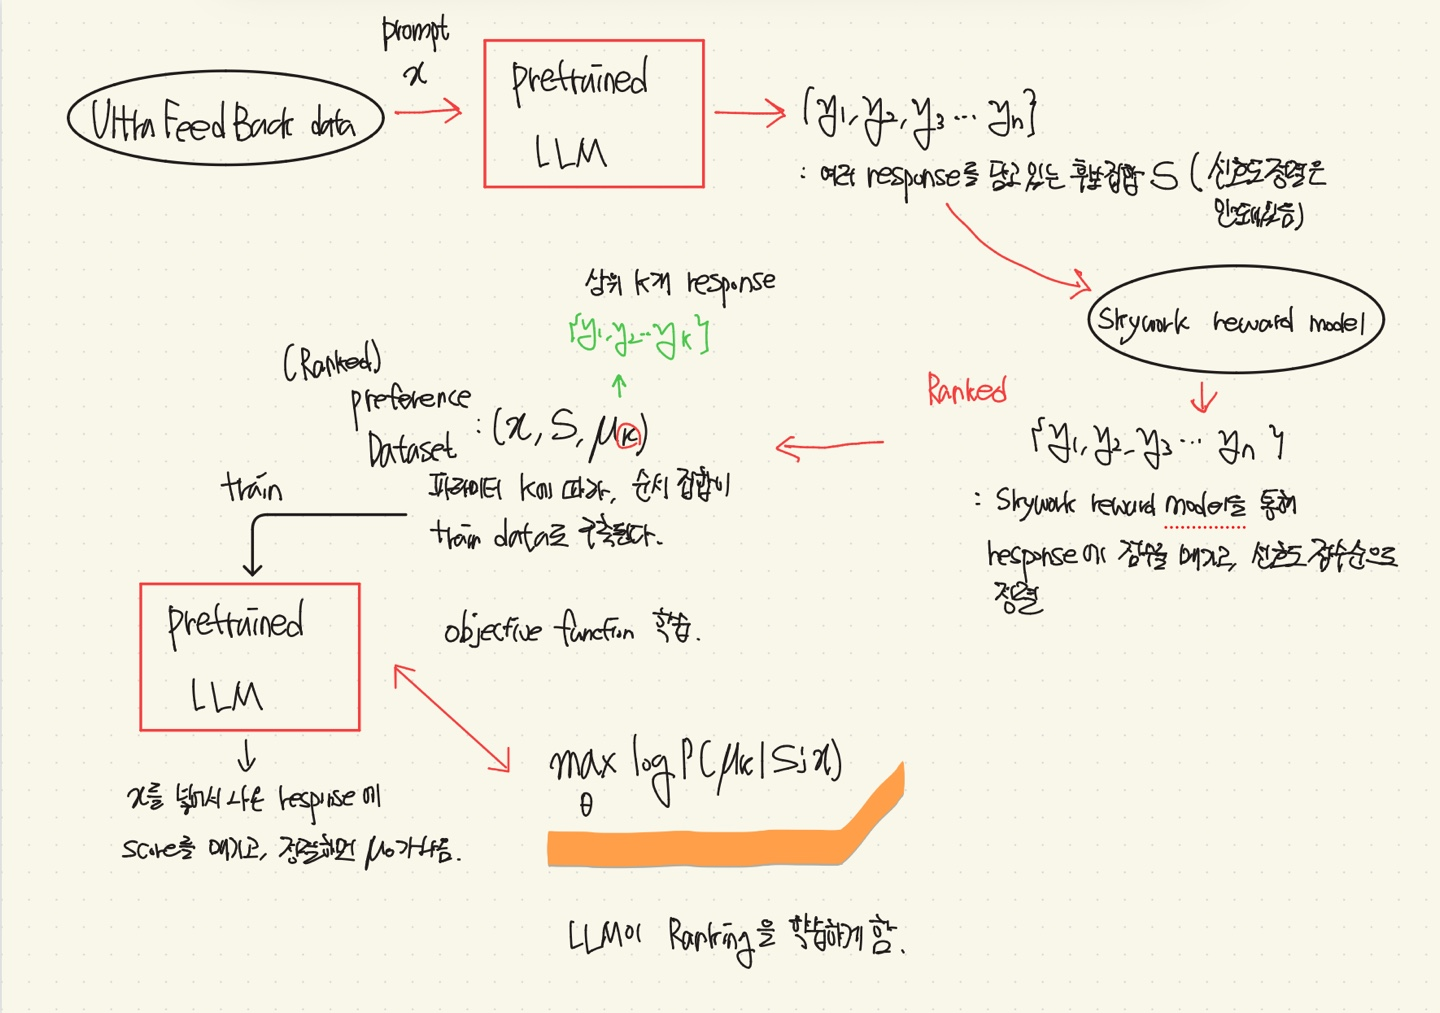 prompt
x
Ultra FeedBack data
pretrained
LLM
{y₁, y₂, y₃ ... yₙ}
: 여러 response를 담고 있는 후보집합 S (선호도정렬은
안돼있음)
Skywork reward model
Ranked
{y₁, y₂, y₃ ... yₙ}
: Skywork reward model을 통해
response에 점수를 매기고, 선호도 점수순으로
정렬
상위 K개 response
{y₁, y₂ ... yₖ}
(Ranked)
preference
Dataset
: (x, S, μₖ)
파라미터 K에 따라, 순서 집합이
train data로 구축된다.
train
pretrained
LLM
objective function 학습.
x를 넣어서 나온 response에
score를 매기고, 정렬하면 μ₀가 나옴.
max log P(μₖ|S;x)
θ
LLM이 Ranking을 학습하게 함.